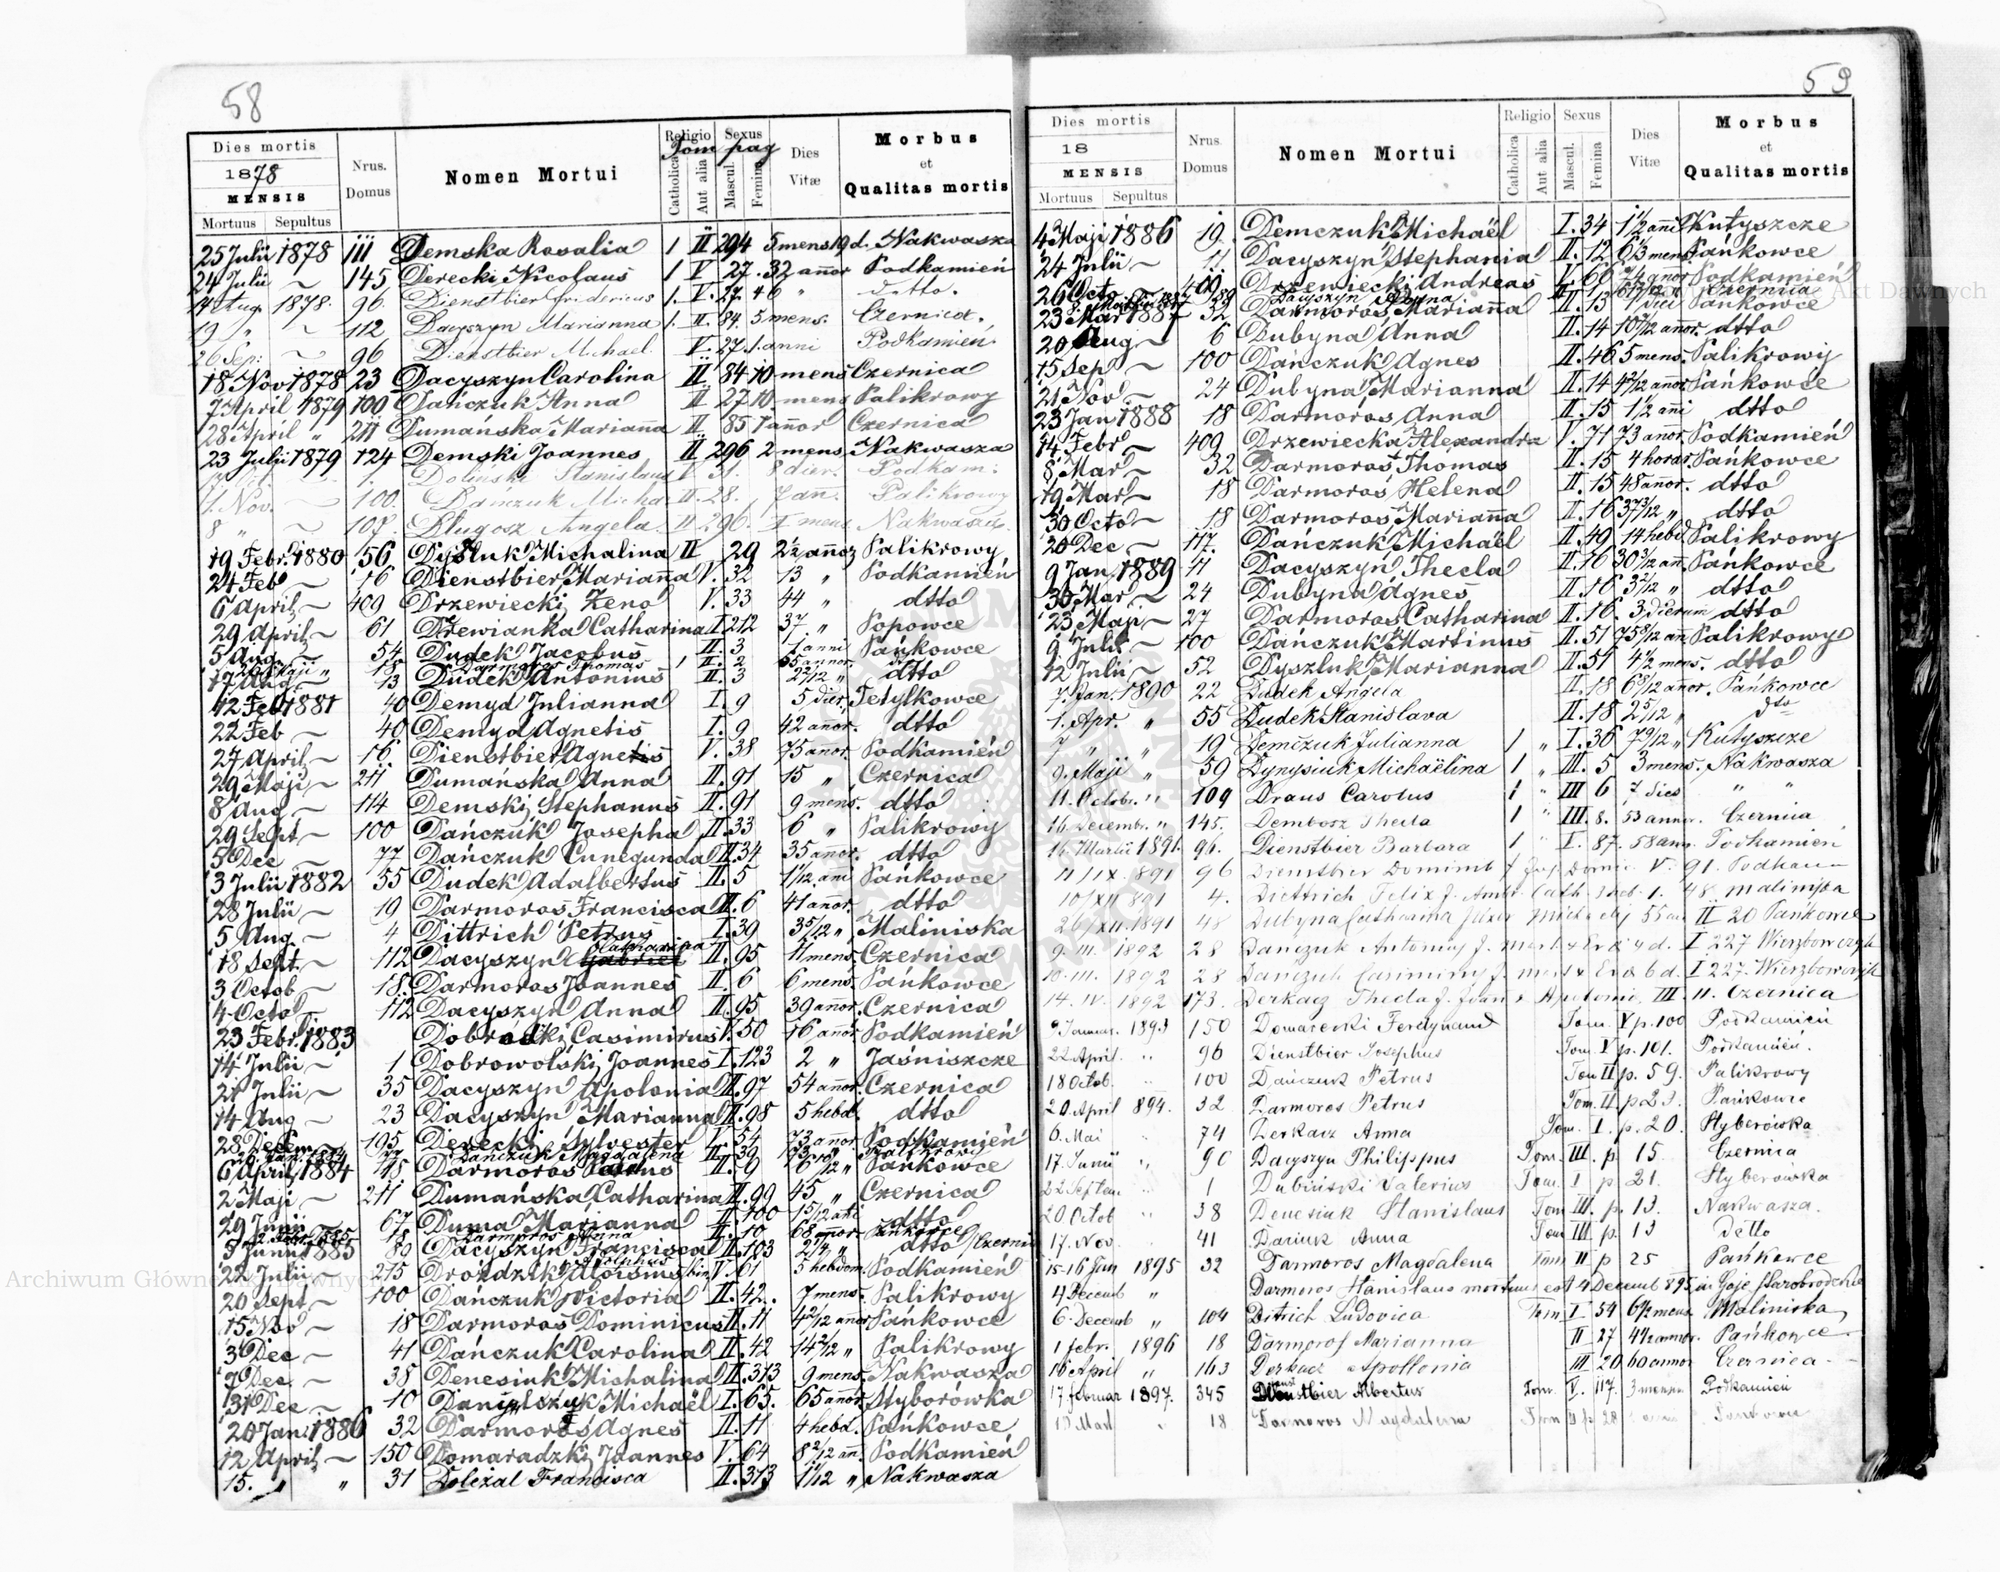 58
Dies mortis
1878
MENSIS
Mortuus Sepultus
Nrus. Domus
Nomen Mortui
Religio
Catholica
Aut alia
Sexus
Mascul.
Femina
Tom pag
Dies Vitæ
Morbus
et
Qualitas mortis
25 Julii 1878 111 Demska Rosalia 1 II 294 5 mens 19 d. Nakwasza
24 Julii ~ 145 Derecki Nicolaus 1 V 27. 32 añor Podkamień
14 Aug. 1878. 96. Dienstbier Fridericus 1. V. 27. 46 " detto.
19 " ~ 112 Dacyszyn Marianna 1. II. 84. 5 mens. Czernica.
26 Sep: ~ 96 Dienstbier Michael V. 27. 1. anni Podkamień
18 Nov 1878 23 Dacyszyn Carolina II. 84 10 mens Czernica
7 April 1879 100 Dańczuk Anna II 27 10. mens Palikrowy
28 April " 211 Dumańska Marianna II 85 1 añor Czernica
23 Julii 1879 124 Demski Joannes II 296 2 mens Nakwasza
1. Doliński Stanislaus V 31. 8 dier. Podkam:
1. Nov. ~ 100. Dańczuk Micha II. 28. Palikrowy
8 " ~ 107. Długosz Angela. II 296. mens Nakwasza.
19 Febr. 1880 56 Dyszluk Michalina II 29 2½ añor Palikrowy
24 Feb ~ 16 Dienstbier Marianna V. 32 13 " Podkamień
6 April ~ 409 Drzewiecki Zeno V. 33 44 " dtto
29 April ~ 61 Drzewianka Catharina I. 212 37 " Popowce
5 Aug ~ 54 Dudek Jacobus II. 3 1 anni Pańkowce
Darmoros Thomas 1 II. 2 65 annor.
17 Aug ~ 13 Dudek Antonius II. 3 2/12 " dtto
12 Feb 1881 40 Demyd Julianna I. 9 5 dier. Tetylkowce
22 Feb ~ 40 Demyd Agnetis I. 9 42 añor. dtto
27 April ~ 16. Dienstbier Agnetis V. 38 75 añor. Podkamień
29 Maji ~ 211 Dumańska Anna II. 91 15 " Czernica
8 Aug ~ 114 Demski Stephanus II. 91 9 mens. dtto
29 Sept ~ 100 Dańczuk Josepha II. 33 6 " Palikrowy
5 Dec ~ 77 Dańczuk Cunegunda II. 34 35 añor. dtto
3 Julii 1882 55 Dudek Adalbertus II. 5 1/12 ani Pańkowce
28 Julii ~ 19 Darmoros Francisca II. 6 41 añor. dtto
5 Aug ~ 4 Dittrich Petrus I. 39 3 5/12 " Maliniska
18 Sept ~ 112 Dacyszyn II. 95 11 mens. Czernica
3 Octob ~ 18. Darmoros Joannes II. 6 6 mens. Pańkowce
4 Octo ~ 112 Dacyszyn Anna II. 95 39 añor. Czernica
23 Febr. 1883 Dobrodki Casimirus V. 50 16 añor Podkamień
14 Julii ~ 1 Dobrowolski Joannes I. 123 2 " Jaśniszcze
21 Julii ~ 35 Dacyszyn Apolonia II. 97 54 añor. Czernica
14 Aug ~ 23 Dacyszyn Marianna II. 98 5 hebd. dtto
28 Decem ~ 195 Derecki Sylvester V. 54 73 añor. Podkamień
Dańczuk Magdalena II. 39
6 April 1884 Darmoros II. 9 6/12 " Pańkowce
2 Maji ~ 211 Dumańska Catharina II. 99 45 " Czernica
29 Junii 67. Duma Marianna II. 100 15/12 añi dtto
18 Darmoros Anna II. 10 68 añor. Pańkowce
9 Junii 1885 89 Dacyszyn Francisca II. 103 2 1/4 " dtto /Czernic
22 Julii ~ 215 Droździk Aloisius V. 61 5 hebdom. Podkamień
20 Sept ~ 100 Dańczuk Victoria II. 42. 7 mens. Palikrowy
15 Nov ~ 18 Darmoros Dominicus II. 11 4 2/12 añor Pańkowce
3 Dec ~ 41 Dańczuk Carolina II. 42 14 2/12 " Palikrowy
9 Dec ~ 38 Denesiuk Michalina II. 313 9 mens. Nakwasza
31 Dec ~ 10 Danylszyk Michaël I. 65. 65 añor Styborówka
20 Jan. 1886 32 Darmoros Agnes II. 11 4 hebd. Pańkowce
12 April ~ 150 Domaradzki Joannes V. 64 8 2/12 añ. Podkamień
15. " " 31 Doleżal Francisca II. 313 1 1/12 " Nakwasza
59
Dies mortis
18
MENSIS
Mortuus Sepultus
Nrus. Domus
Nomen Mortui
Religio
Catholica
Aut alia
Sexus
Mascul.
Femina
Dies Vitæ
Morbus
et
Qualitas mortis
4 Maji 1886 19. Demczuk Michaël I. 34 1½ añi Kutyszcze
24 Julii ~ 11 Dacyszyn Stephania II. 12 6 1/3 mens. Pańkowce
26 Oct 409 Drzewiecki Andreas V. 66 74 añor Podkamień
Dacyszyn Anna Czernica
23 Mar 1887 32 Darmoros Marianna II. 13 Pańkowce
20 Aug ~ 6 Dubyna Anna II. 14 10 7/12 añor. dtto
15 Sep ~ 100 Dańczuk Agnes II. 46 5 mens. Palikrowy
21 Nov. ~ 24 Dubyna Marianna II. 14 4 2/12 añor Pańkowce
23 Jan 1888 18 Darmoros Anna II. 15 1½ añi dtto
14 Febr ~ 409 Drzewiecka Alexandra V. 71 73 añor. Podkamień
8 Mar ~ 32 Darmoros Thomas II. 15 4 horar. Pańkowce
19 Mar ~ 18 Darmoros Helena II. 15 48 añor. dtto
30 Octo ~ 18 Darmoros Marianna II. 16 37 3/12 " dtto
20 Dec ~ 117. Dańczuk Michaël II. 49 14 hebd Palikrowy
9 Jan 1889 11 Dacyszyn Thecla II. 16 30 3/12 añ. Pańkowce
30 Mar ~ 24 Dubyna Agnes II. 16 3 2/12 " dtto
23 Maji ~ 27 Darmoros Catharina II. 16. 3 dierum dtto
9 Julii ~ 100 Dańczuk Martinus II. 51 75 8/12 añ Palikrowy
12 Julii ~ 52 Dyszluk Marianna II. 51 4½ mens. dtto
7. Jan. 1890 22 Dudek Angela II. 18 6 8/12 añor. Pańkowce
1. Apr. " 55 Dudek Stanislava II. 18 2 5/12 " dto
7 " " 19 Demczuk Julianna 1 " I. 36 7 9/12 " Kutyszcze
9. Maji " 59 Dynysiuk Michaëlina 1 " III. 5 3 mens. Nakwasza
11. Octobr. " 109 Draus Carolus 1 " III 6 7 dies " "
16. Decembr. " 145. Dembosz Thecla 1 " III. 8. 53 annor. Czernica
14. Martii 1891. 96. Dienstbier Barbara 1 " I. 87. 58 ann. Podkamień
11/IX. 891 96 Dienstbier Dominik V. 91. Podkam
10/XII 891 4. Diettrich Felix f. Ambr. Cath. I. 48. Maliniska
26/XII. 1891 48 Dubyna Catharina Michaelis 55 an. II 20 Pańkowce
9. III. 1892 28 Danczuk Antonius f. 4 d. I 227 Wierzbowczyk
10. III. 1892 28 Danczuk Casimirus f. 6 d. I 227. Wierzbowczyk
14. IV. 1892 173. Derkacz Thecla f. Joan & Apolonia III. 11. Czernica
9 Januar. 1893 150 Domarecki Ferdynand Tom. V p. 100 Podkamień
22 April. " 96 Dienstbier Josephus Tom. V p. 101. Podkamień.
18 Octob. " 100 Dańczuk Petrus Tom II p. 59. Palikrowy
20. April 894. 32 Darmoros Petrus Tom. II p 23. Pańkowce
6. Mai 74 Derkacz Anna Tom. I. p. 20. Styberówka
17. Junii " 90 Dacyszyn Philippus Tom. III. p. 15. Czernica
22 Septem " 1 Dubiński Valerius Tom. I p 21. Styberówka
20. Octob " 38 Denesiuk Stanislaus Tom III. p. 13. Nakwasza.
17. Nov. " 41 Dariusz Anna Tom III p. 13 detto
15-16 Jan 1895 32 Darmoros Magdalena Tom II p 25 Pańkowce
4 Decemb " Darmoros Stanislaus mortuus est 4 Decemb 895 in Gaje Starobrodzkie
6. Decemb " 104 Ditrich Ludovica Tom I 54 6½ mens Maliniska
1 febr. 1896 18 Darmoros Marianna II 27 4½ annor. Pańkowce
16 April " 163 Derkacz Apollonia III 20 60 annor Czernica
17 februar 1897. 345 Dienstbier Albertus Tom. V. 117. 3 mensu Podkamień
18 Darmoros Magdalena Tom II p 28 Pańkowce
Archiwum Główne Akt Dawnych